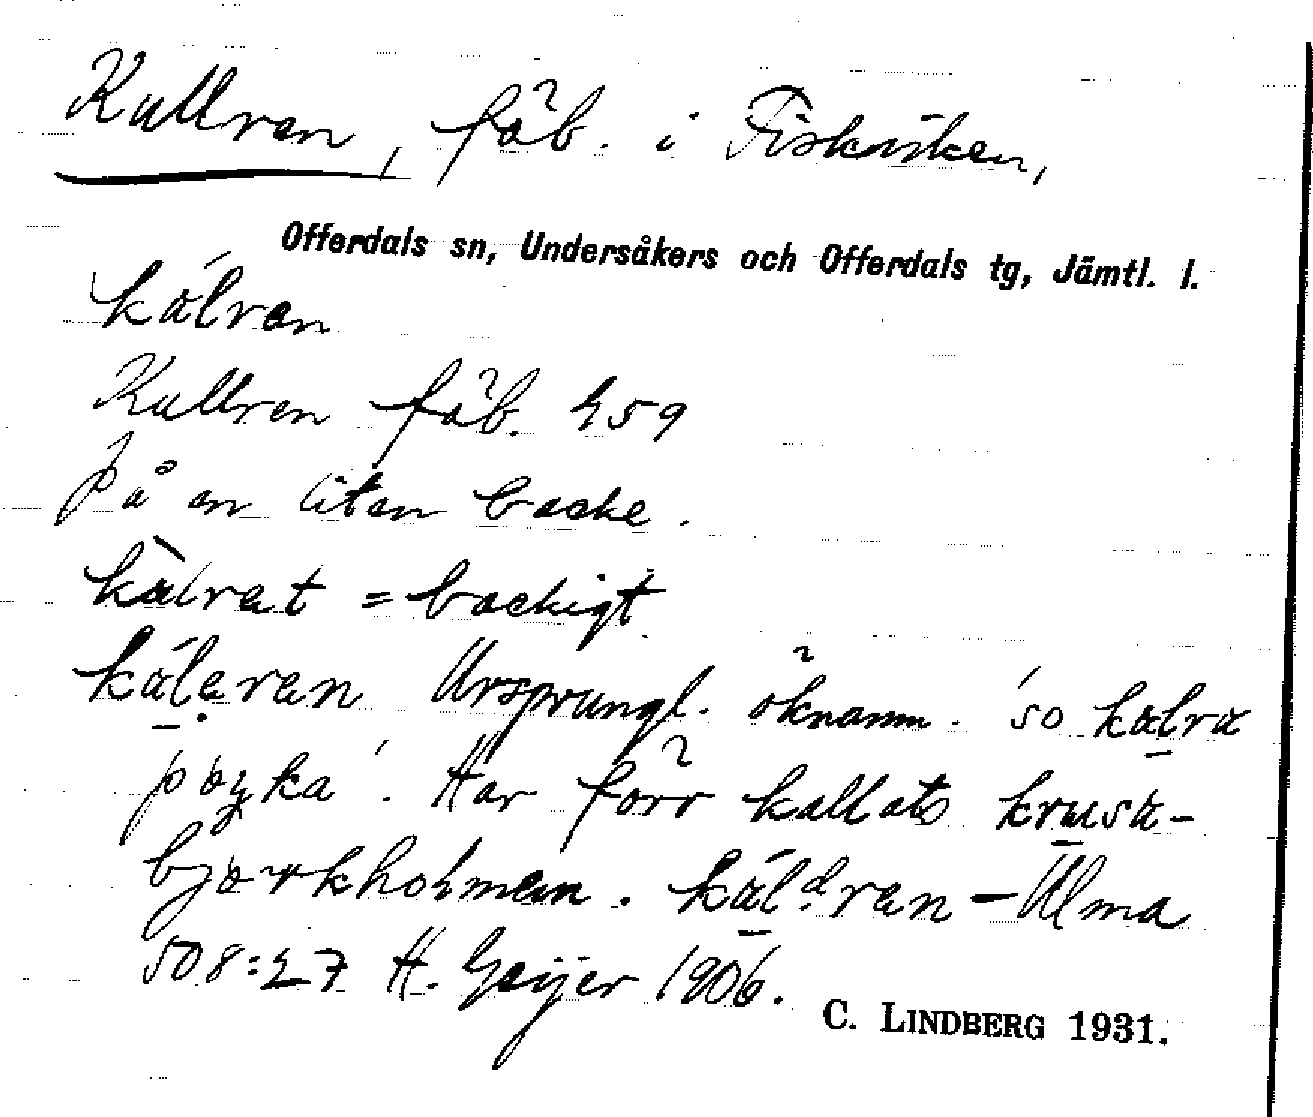 Kullran, fäb. i Fiskviken,
Offerdals sn, Undersåkers och Offerdals tg, Jämtl. l.
kálran
Kullren fäb. 259
På en liten backe.
kàlrat = backigt
káleran Ursprungl. öknamn. 'so kalra
poyka'. Har förr kallats krusa-
björkholmen. kálᵈran – Ulma
508:27 H. Geijer 1906.
C. LINDBERG 1931.